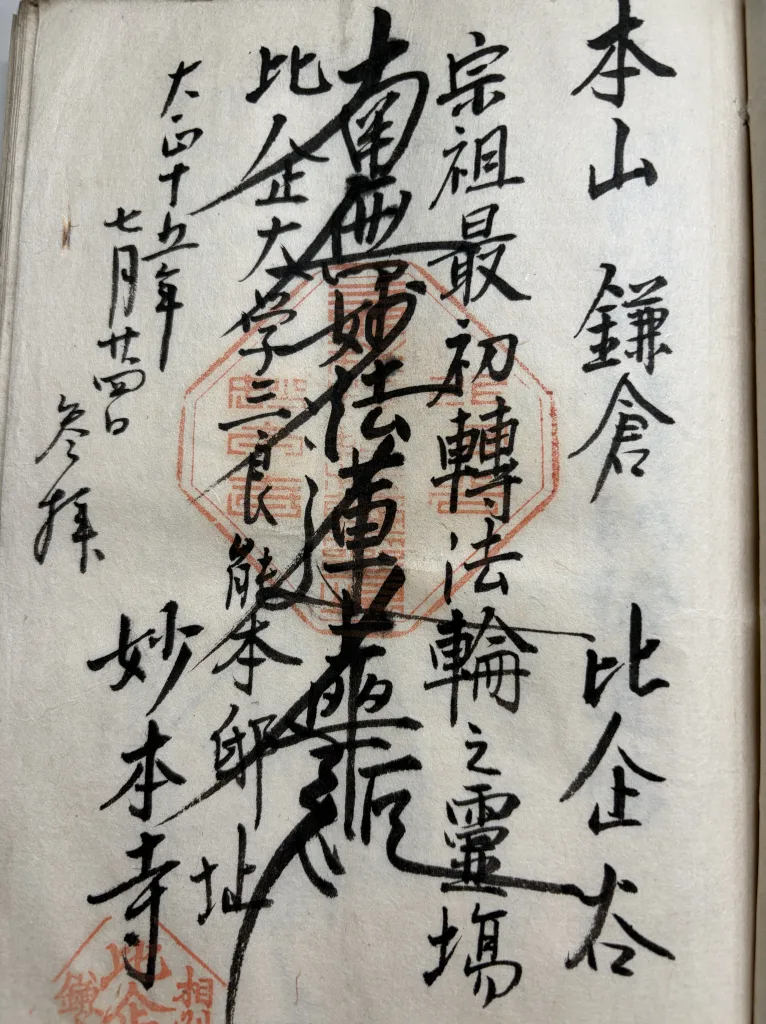 本山 鎌倉 比企谷
宗祖最初轉法輪之靈場
南無妙法蓮華経
比企大学三良能本邸址
妙本寺
大正十五年
七月廿四日
参拝
比企
相州
鎌